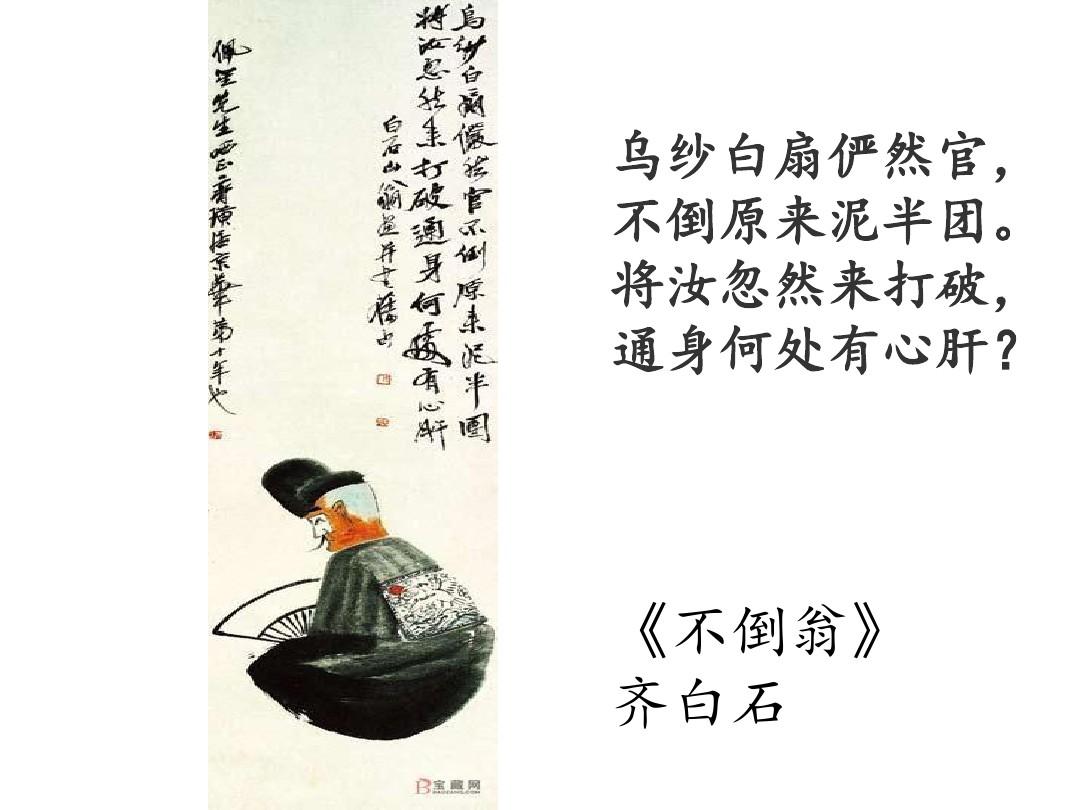 烏紗白扇儼然官不倒原來泥半團
將汝忽然來打破通身何處有心肝
白石山翁畫并書舊句
佩珩先生晒正齊璜
乌纱白扇俨然官，
不倒原来泥半团。
将汝忽然来打破，
通身何处有心肝？
《不倒翁》
齐白石
宝藏网
BAOZANG.COM